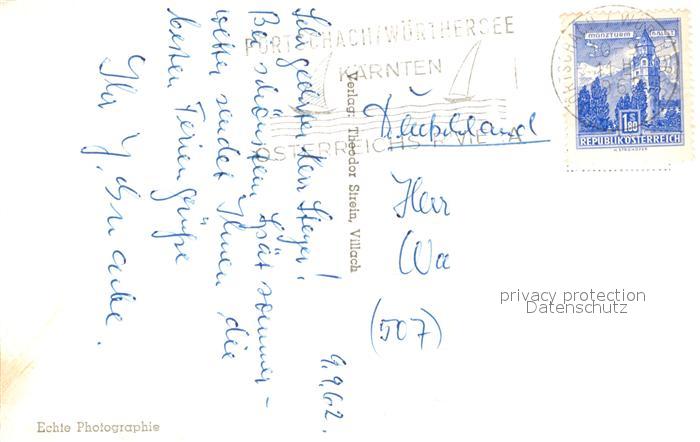 Sehr geehrter Herr Steyer!
Bei schönstem Spätsommer-
wetter sendet Ihnen die
besten Feriengrüße
Ihr
9.9.62.
PÖRTSCHACH/WÖRTHERSEE
KÄRNTEN
ÖSTERREICHS RIVIERA
Verlag: Theodor Strein, Villach
MÜNZTURM HALL I.T.
1.80
REPUBLIK ÖSTERREICH
Deutschland
Herr
Wa
(507)
privacy protection
Datenschutz
Echte Photographie